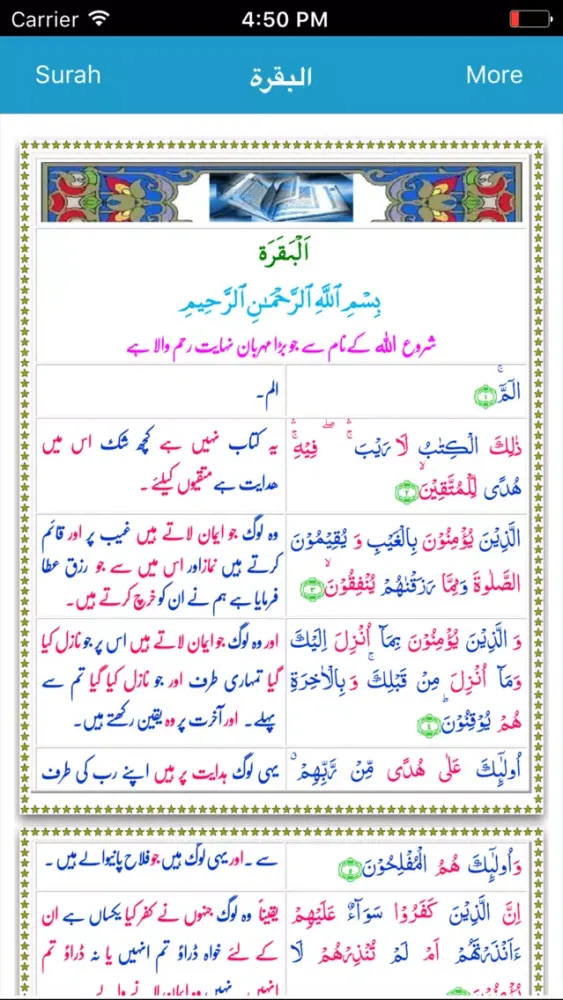 Carrier 4:50 PM
Surah البقرة More
اَلْبَقَرَة
بِسْمِ اللّٰهِ الرَّحْمٰنِ الرَّحِيمِ
شروع اللہ کے نام سے جو بڑا مہربان نہایت رحم والا ہے
الٓمّٓ ۚ ﴿۱﴾
الم۔
ذٰلِكَ الْكِتٰبُ لَا رَيْبَ ۛۚ ۖ فِيْهِ ۛۚ
هُدًى لِّلْمُتَّقِيْنَ ۙ ﴿۲﴾
یہ کتاب نہیں ہے کچھ شک اس میں
ھدایت ہے متقیوں کیلئے ۔
الَّذِيْنَ يُؤْمِنُوْنَ بِالْغَيْبِ وَ يُقِيْمُوْنَ
الصَّلٰوةَ وَمِمَّا رَزَقْنٰهُمْ يُنْفِقُوْنَ ۙ ﴿۳﴾
وہ لوگ جو ایمان لاتے ہیں غیب پر اور قائم
کرتے ہیں نماز اور اس میں سے جو رزق عطا
فرمایا ہے ہم نے ان کو خرچ کرتے ہیں۔
وَ الَّذِيْنَ يُؤْمِنُوْنَ بِمَآ اُنْزِلَ اِلَيْكَ
وَمَآ اُنْزِلَ مِنْ قَبْلِكَ ۚ وَبِالْاٰخِرَةِ
هُمْ يُوْقِنُوْنَ ؕ ﴿۴﴾
اور وہ لوگ جو ایمان لاتے ہیں اس پر جو نازل کیا
گیا تمہاری طرف اور جو نازل کیا گیا تم سے
پہلے۔ اور آخرت پر وہ یقین رکھتے ہیں۔
اُولٰٓئِكَ عَلٰى هُدًى مِّنْ رَّبِّهِمْ ۙ
یہی لوگ ہدایت پر ہیں اپنے رب کی طرف
وَاُولٰٓئِكَ هُمُ الْمُفْلِحُوْنَ ﴿۵﴾
سے ۔ اور یہی لوگ ہیں جو فلاح پانیوالے ہیں ۔
اِنَّ الَّذِيْنَ كَفَرُوْا سَوَآءٌ عَلَيْهِمْ
ءَاَنْذَرْتَهُمْ اَمْ لَمْ تُنْذِرْهُمْ لَا
یقیناً وہ لوگ جنہوں نے کفر کیا یکساں ہے ان
کے لئے خواہ ڈراؤ تم انہیں یا نہ ڈراؤ تم